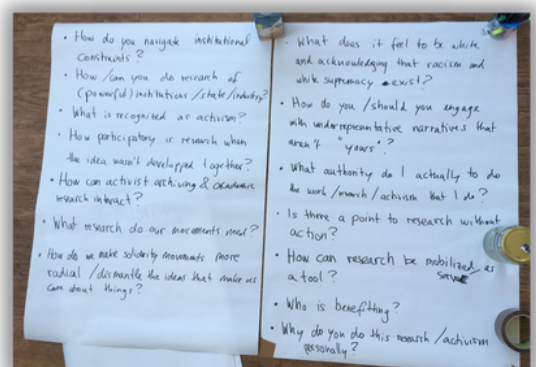 • How do you navigate institutional
constraints?
• How /can you do research of
(powerful) institutions /state/industry?
• What is recognized as activism?
• How participatory is research when
the idea wasn't developped together?
• How can activist archiving & academic
research interact?
• What research do our movements need?
• How do we make solidarity movements more
radial /dismantle the ideas that make us
care about things?
• What does it feel to be white
and acknowledging that racism and
white supremacy exist?
• How do you /should you engage
with underrepresentative narratives that
aren't "yours"?
• What authority do I actually to do
the work /research /activism that I do?
• Is there a point to research without
action?
• How can research be mobilized as
a tool? serve
• Who is benefitting?
• Why do you do this research /activism
personally?